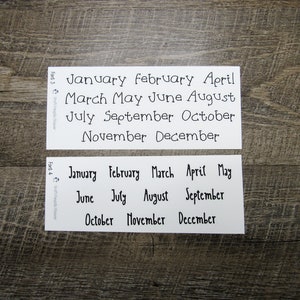 January February April
March May June August
July September October
November December
Font 3
January February March April May
June July August September
October November December
Font 4